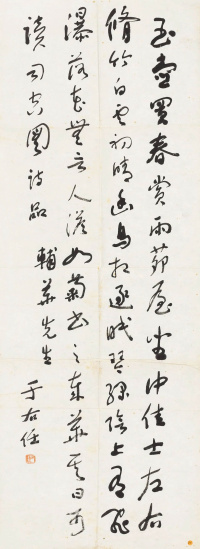 玉壺買春賞雨茆屋坐中佳士左右
脩竹白雲初晴幽鳥相逐眠琴綠陰上有飛
瀑落花無言人澹如菊書之歲華其曰可
讀司空圖詩品 輔華先生 于右任